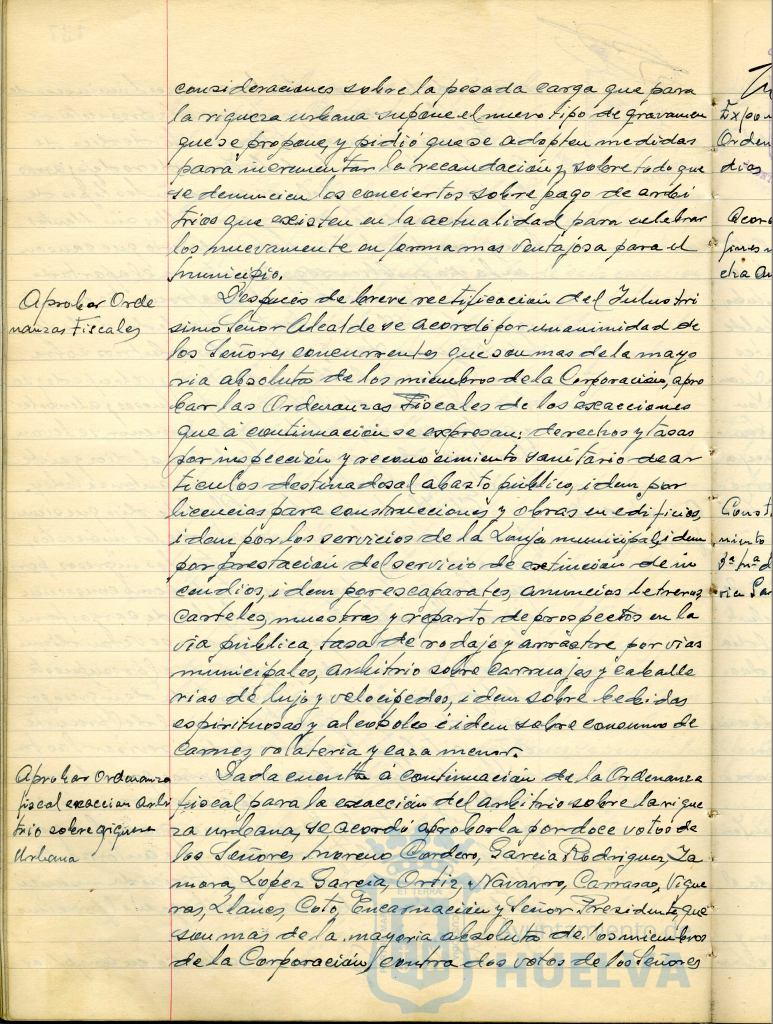 consideraciones sobre la pesada carga que para
la riqueza urbana supone el nuevo tipo de gravamen
que se propone, y pidió que se adopten medidas
para incrementar la recaudación y sobre todo que
se denuncien los conciertos sobre pago de arbi
trios que existen en la actualidad para celebrar
los nuevamente en forma mas ventajosa para el
municipio.
Aprobar Orde
nanzas Fiscales
Después de breve rectificación del Ilustri
simo Señor Alcalde se acordó por unanimidad de
los Señores concurrentes que son mas de la mayo
ria absoluta de los miembros de la Corporación, apro
bar las Ordenanzas Fiscales de los exacciones
que á continuación se expresan: derechos y tasas
por inspección y reconocimiento sanitario de ar
ticulos destinados al abasto público, idem por
licencias para construcciones y obras en edificios,
idem por los servicios de la Lonja municipal, idem
por prestación del servicio de extinción de in
cendios, idem por escaparates, anuncios letreros,
carteles, muestras y reparto de prospectos en la
via pública, tasa de rodaje y arrastre por vias
municipales, arbitrio sobre carruajes y caballe
rias de lujo y velocipedos, idem sobre bebidas
espirituosas y alcoholes é idem sobre consumo de
carnes, volateria y caza menor.
Aprobar Ordenanza
fiscal exaccion arbi
trio sobre riqueza
Urbana
Dada cuenta á continuación de la Ordenanza
fiscal para la exacción del arbitrio sobre la rique
za urbana, se acordó aprobarla por doce votos de
los Señores Moreno Cordero, Garcia Rodriguez, Za
mora, Lopez Garcia, Ortiz, Navarro, Carrasco, Vigue
ras, Llanes, Coto, Encarnación y Señor Presidente que
son mas de la mayoria absoluta de los miembros
de la Corporación, contra dos votos de los Señores
Orden
dias
Ayuntamiento de
HUELVA